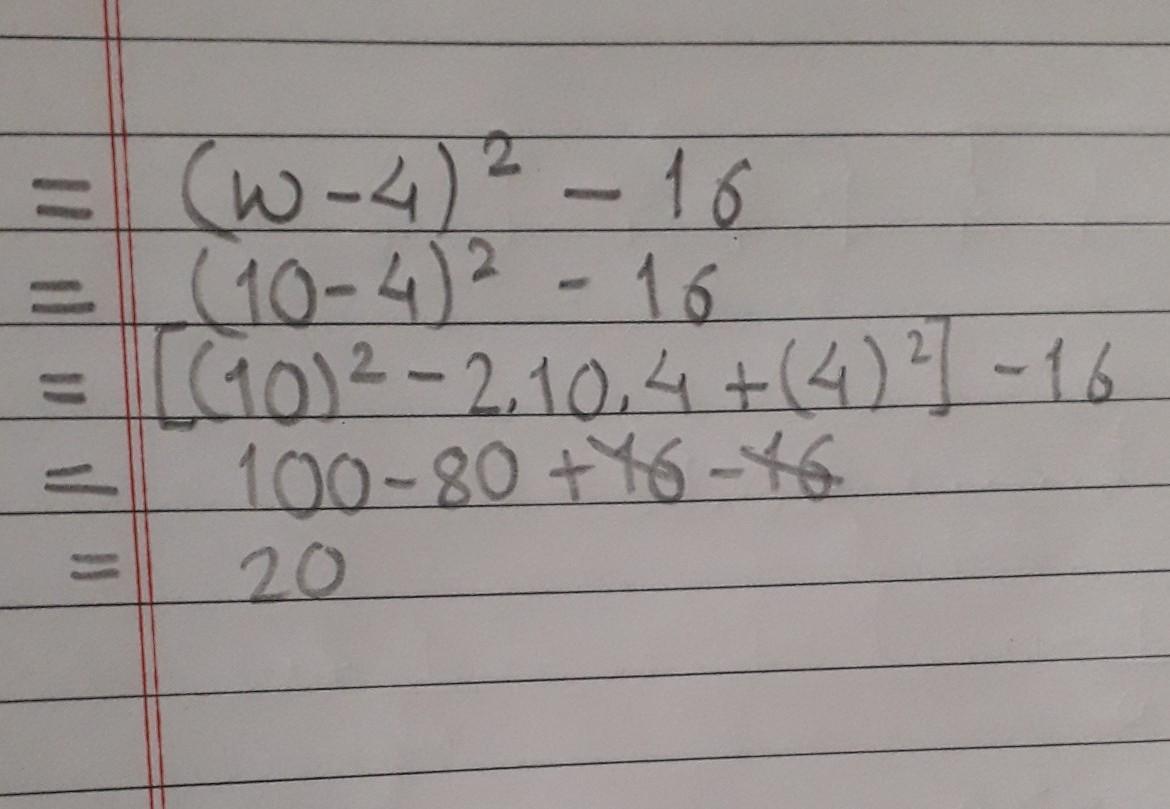 = (w-4)² - 16
= (10-4)² - 16
= [(10)² - 2.10.4 + (4)²] - 16
= 100 - 80 + 16 - 16
= 20